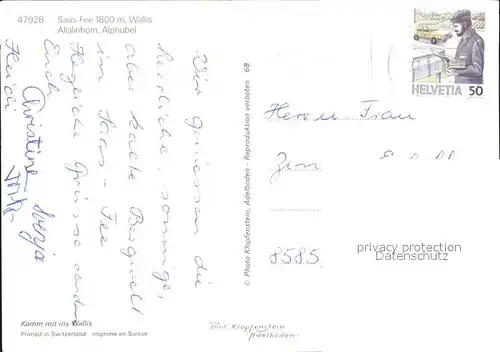 47928 Saas-Fee 1800 m, Wallis
Allalinhorn, Alphubel
Wir geniessen die
herrliche, sonnige,
aber kalte Bergwelt
in Saas-Fee
Herzliche Grüsse senden
Euch
Heidi Christine Svenja
Komm mit ins Wallis
Printed in Switzerland Imprimé en Suisse
© Photo Klopfenstein, Adelboden - Reproduktion verboten 68
Phot Klopfenstein
Adelboden
HELVETIA 50
Herrn, Frau
8585
privacy protection
Datenschutz